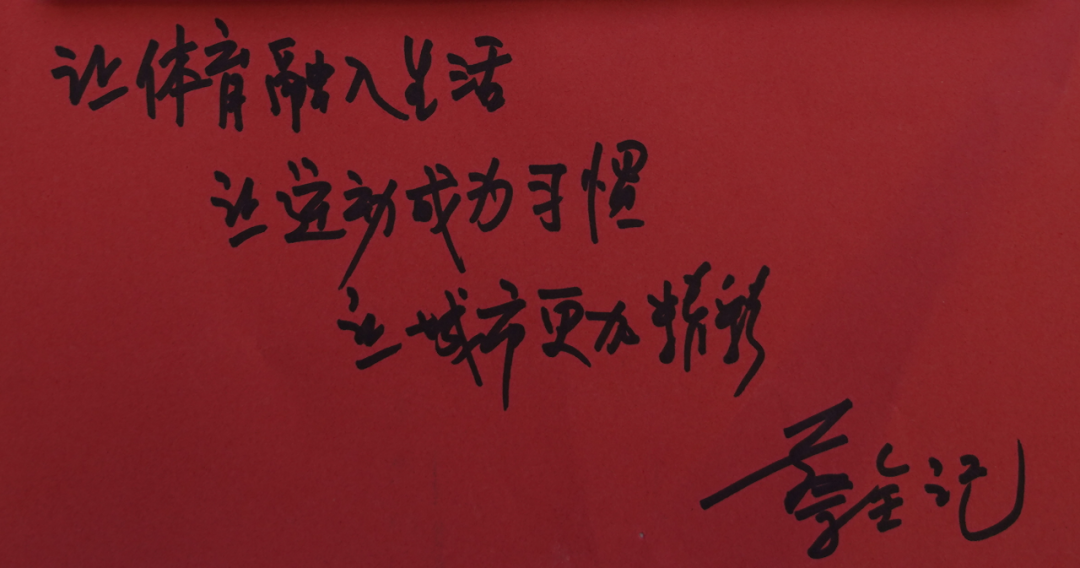 让体育融入生活
让运动成为习惯
让城市更加精彩